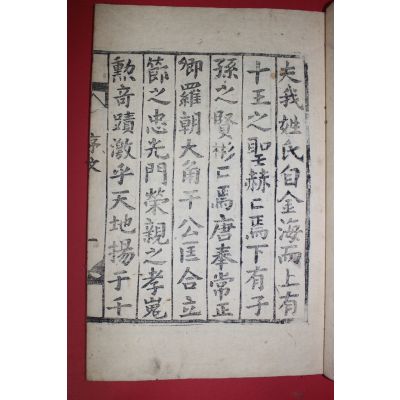 夫我姓氏自金海而上有
十王之聖赫〻焉下有子
孫之賢彬〻焉唐奉常正
卿羅朝大角干公匡合立
節之忠光門榮親之孝嵬
勲奇蹟激乎天地揚于千
序文